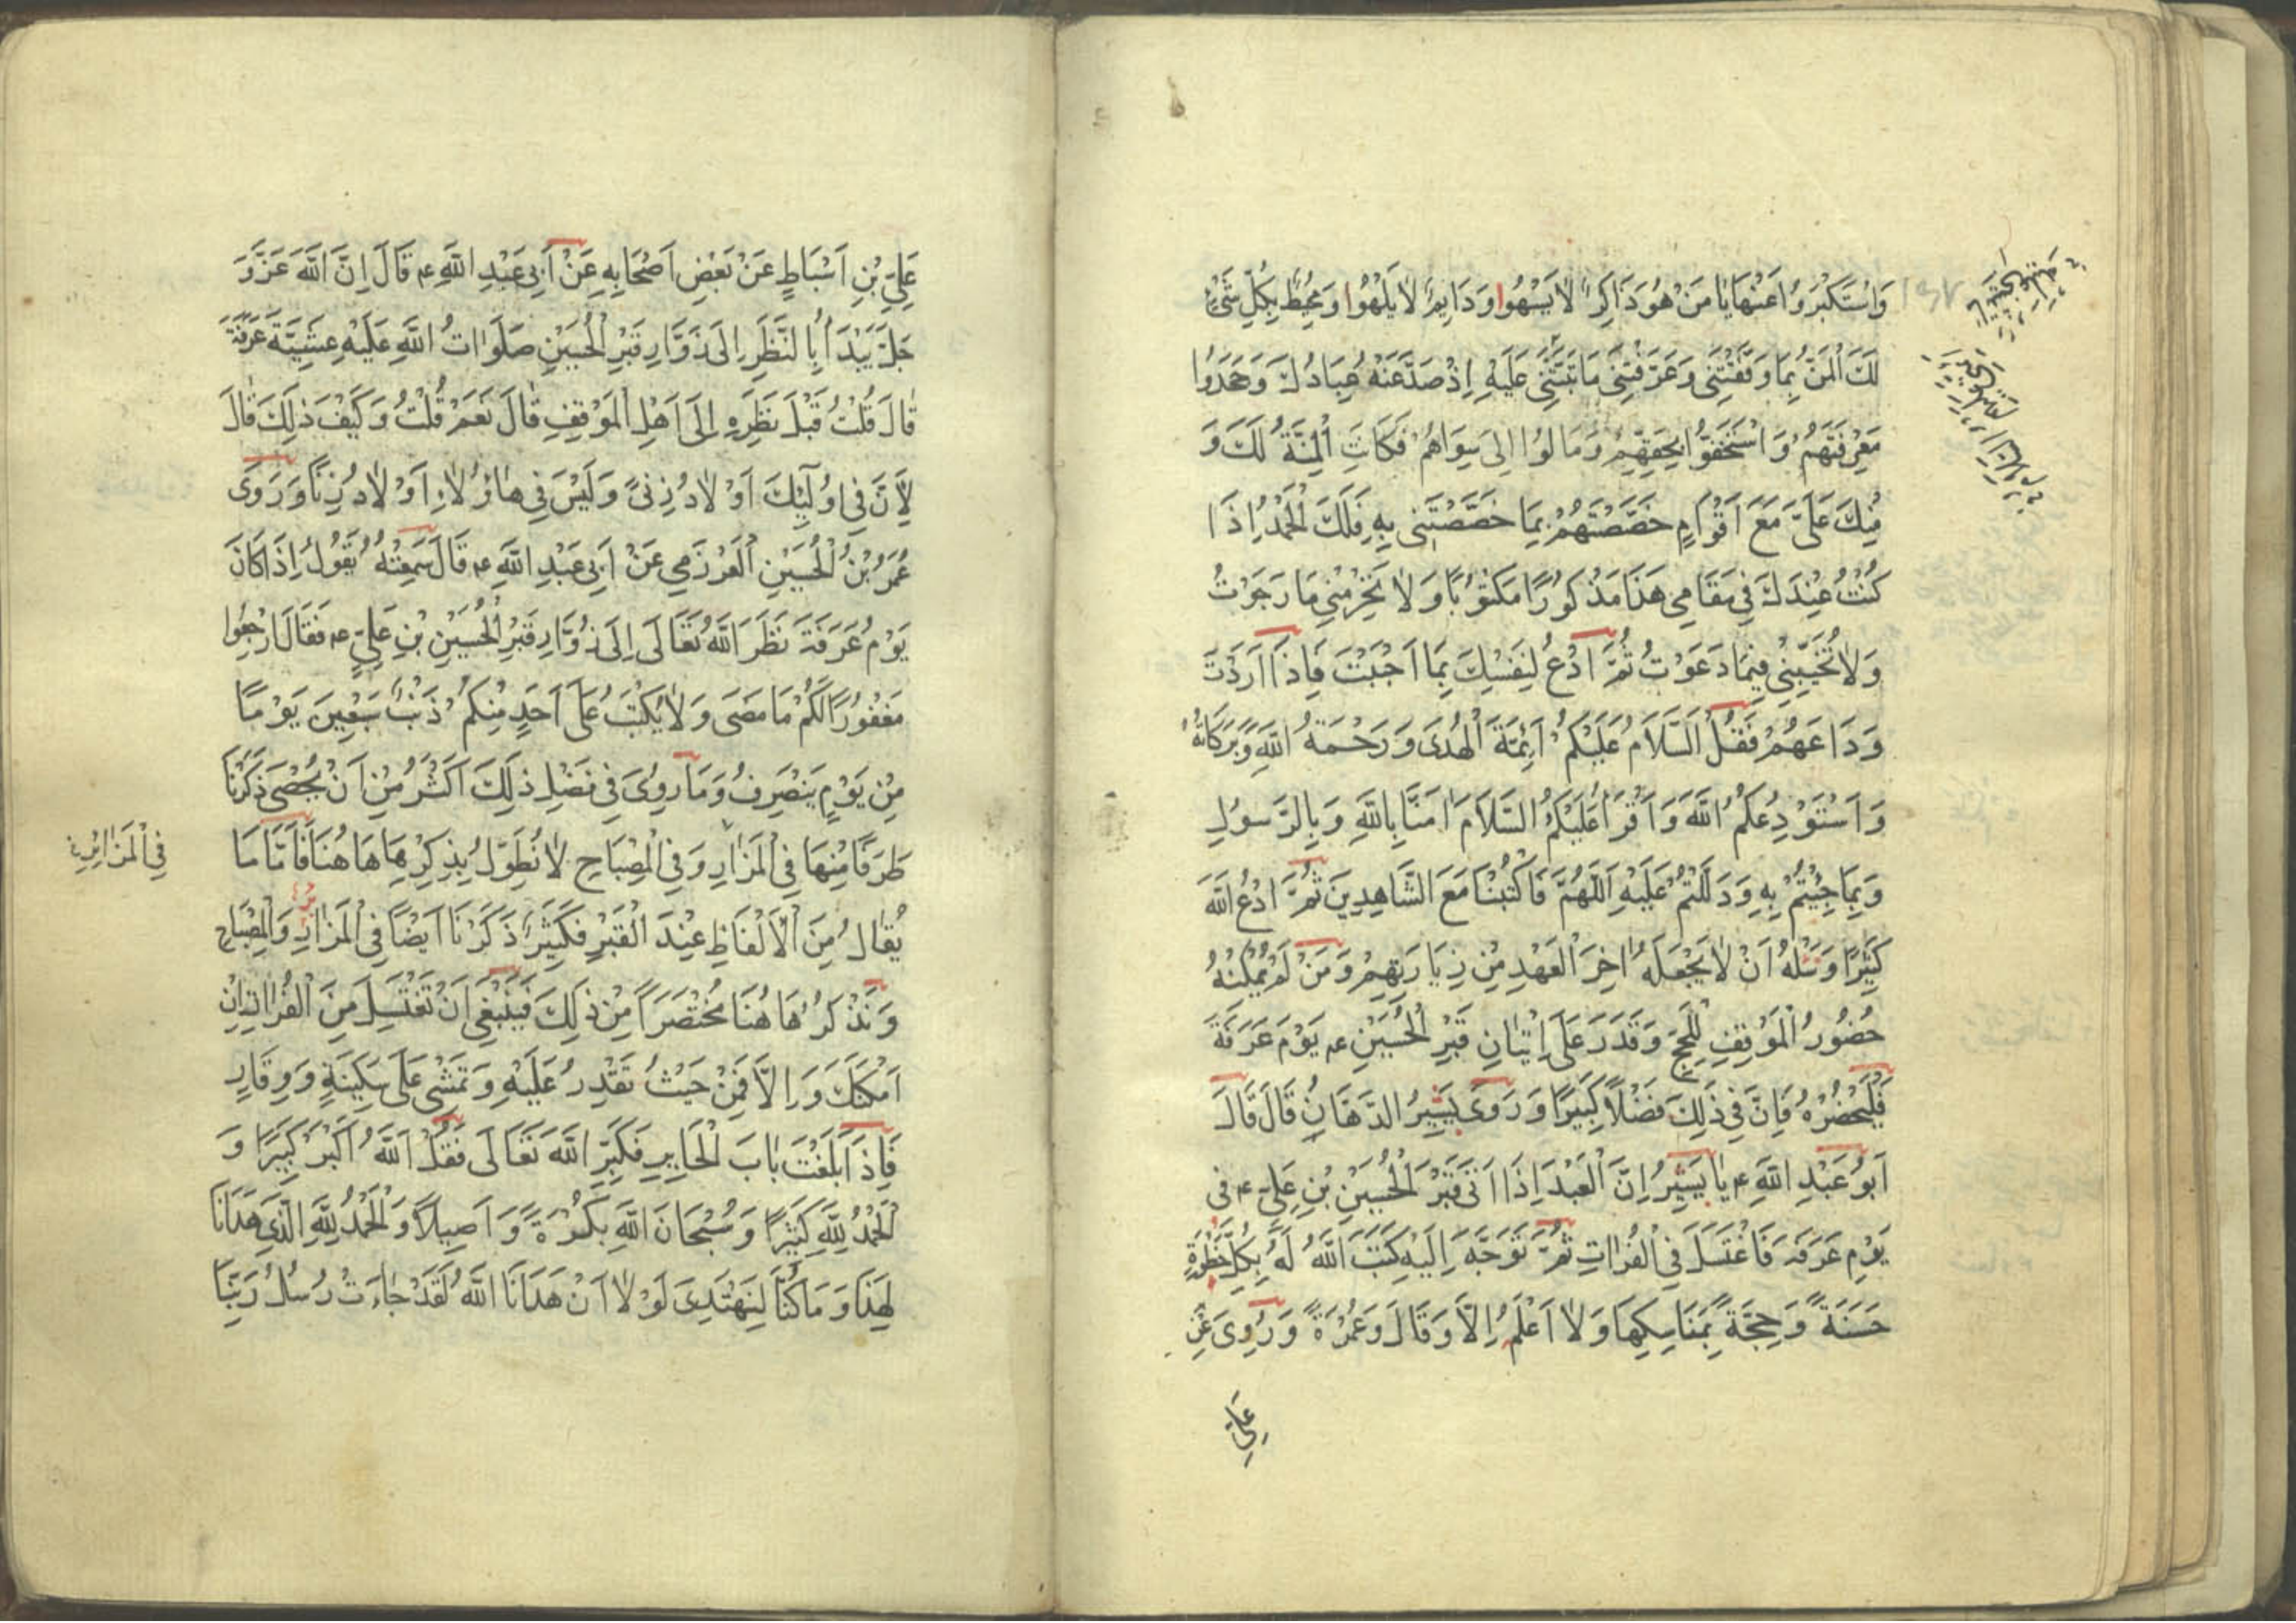 وَاسْتَكْبَرُوا عَنْهَا يَا مَنْ هُوَ ذَاكِرٌ لَا يَسْهُوا وَدَايِمٌ لَا يَلْهُوا وَمُحِيطٌ بِكُلِّ شَيْءٍ
لَكَ الْمَنُّ بِمَا وَفَّقْتَنِي وَعَرَّفْتَنِي مَا ثَبَّتَّنِي عَلَيْهِ اِذْ صَدَّ عَنْهُ عِبَادُكَ وَجَحَدُوا
مَعْرِفَتَهُمْ وَاسْتَخَفُّوا بِحَقِّهِمْ وَمَالُوا اِلَى سِوَاهُمْ فَكَانَتِ الْمِنَّةُ لَكَ وَ
مِنْكَ عَلَيَّ مَعَ اَقْوَامٍ خَصَصْتَهُمْ بِمَا خَصَصْتَنِي بِهِ فَلَكَ الْحَمْدُ اِذَا
كُنْتُ عِنْدَكَ فِي مَقَامِي هَذَا مَذْكُورًا مَكْتُوبًا وَلَا تَحْرِمْنِي مَا رَجَوْتُ
وَلَا تُخَيِّبْنِي فِيمَا دَعَوْتُ ثُمَّ ادْعُ لِنَفْسِكَ بِمَا اَحْبَبْتَ فَاِذَا اَرَدْتَ
وَدَاعَهُمْ فَقُلْ اَلسَّلَامُ عَلَيْكُمْ اَئِمَّةَ الْهُدَى وَرَحْمَةُ اللّٰهِ وَبَرَكَاتُهُ
وَاَسْتَوْدِعُكُمُ اللّٰهَ وَاَقْرَأُ عَلَيْكُمُ السَّلَامَ اٰمَنَّا بِاللّٰهِ وَبِالرَّسُولِ
وَبِمَا جِئْتُمْ بِهِ وَدَلَلْتُمْ عَلَيْهِ اَللّٰهُمَّ فَاكْتُبْنَا مَعَ الشَّاهِدِينَ ثُمَّ ادْعُ اللّٰهَ
كَثِيرًا وَسَلْهُ اَنْ لَا يَجْعَلَهُ اٰخِرَ الْعَهْدِ مِنْ زِيَارَتِهِمْ وَمَنْ لَمْ يُمْكِنْهُ
حُضُورُ الْمَوْقِفِ لِلْحَجِّ وَقَدَرَ عَلَى اِتْيَانِ قَبْرِ الْحُسَيْنِ ع يَوْمَ عَرَفَةَ
فَلْيَحْضُرْهُ فَاِنَّ فِي ذَلِكَ فَضْلًا كَبِيرًا وَرَوَى بَشِيرُ الدَّهَّانِ قَالَ قَالَ
اَبُو عَبْدِ اللّٰهِ ع يَا بَشِيرُ اِنَّ الْعَبْدَ اِذَا اَتَى قَبْرَ الْحُسَيْنِ بْنِ عَلِيٍّ ع فِي
يَوْمِ عَرَفَةَ فَاغْتَسَلَ فِي الْفُرَاتِ ثُمَّ تَوَجَّهَ اِلَيْهِ كَتَبَ اللّٰهُ لَهُ بِكُلِّ خُطْوَةٍ
حَسَنَةً وَحِجَّةً بِمَنَاسِكِهَا وَلَا اَعْلَمُ اِلَّا وَقَالَ وَعُمْرَةً وَرُوِيَ عَنْ
عَلِيِّ
عَلِيِّ بْنِ اَسْبَاطٍ عَنْ بَعْضِ اَصْحَابِهِ عَنْ اَبِي عَبْدِ اللّٰهِ ع قَالَ اِنَّ اللّٰهَ عَزَّ وَ
جَلَّ يَبْدَأُ بِالنَّظَرِ اِلَى زَوَّارِ قَبْرِ الْحُسَيْنِ صَلَوَاتُ اللّٰهِ عَلَيْهِ عَشِيَّةَ عَرَفَةَ
قَالَ قُلْتُ قَبْلَ نَظَرِهِ اِلَى اَهْلِ الْمَوْقِفِ قَالَ نَعَمْ قُلْتُ وَكَيْفَ ذٰلِكَ قَالَ
لِاَنَّ فِي اُولٰئِكَ اَوْلَادُ زِنًى وَلَيْسَ فِي هٰؤُلَاءِ اَوْلَادُ زِنًا وَرَوَى
عُمَرُ بْنُ الْحُسَيْنِ الْعَرْزَمِي عَنْ اَبِي عَبْدِ اللّٰهِ ع قَالَ سَمِعْتُهُ يَقُولُ اِذَا كَانَ
يَوْمُ عَرَفَةَ نَظَرَ اللّٰهُ تَعَالَى اِلَى زُوَّارِ قَبْرِ الْحُسَيْنِ بْنِ عَلِيٍّ ع فَقَالَ ارْجِعُوا
مَغْفُورًا لَكُمْ مَا مَضَى وَلَا يُكْتَبُ عَلَى اَحَدٍ مِنْكُمْ ذَنْبٌ سَبْعِينَ يَوْمًا
مِنْ يَوْمٍ يَنْصَرِفُ وَمَا رُوِيَ فِي فَضْلِ ذٰلِكَ اَكْثَرُ مِنْ اَنْ يُحْصَى ذَكَرْنَا
طَرَفًا مِنْهَا فِي الْمَزَارِ وَفِي الْمِصْبَاحِ لَا نُطَوِّلُ بِذِكْرِهَا هَاهُنَا فَاَمَّا مَا
فِي الْمَزَائِرِ
يُقَالُ مِنَ الْاَلْفَاظِ عِنْدَ الْقَبْرِ فَكَثِيرٌ ذَكَرْنَا اَيْضًا فِي الْمَزَارِ وَالْمِصْبَاحِ
وَنَذْكُرُ هَاهُنَا مُخْتَصَرًا مِنْ ذٰلِكَ فَيَنْبَغِي اَنْ تَغْتَسِلَ مِنَ الْفُرَاتِ اِنْ
اَمْكَنَكَ وَاِلَّا فَمِنْ حَيْثُ تَقْدِرُ عَلَيْهِ وَتَمْشِي عَلَى سَكِينَةٍ وَوِقَارٍ
فَاِذَا بَلَغْتَ بَابَ الْحَايِرِ فَكَبِّرِ اللّٰهَ تَعَالَى فَقُلْ اَللّٰهُ اَكْبَرُ كَبِيرًا وَ
الْحَمْدُ لِلّٰهِ كَثِيرًا وَسُبْحَانَ اللّٰهِ بُكْرَةً وَاَصِيلًا وَالْحَمْدُ لِلّٰهِ الَّذِي هَدَانَا
لِهَذَا وَمَا كُنَّا لِنَهْتَدِيَ لَوْلَا اَنْ هَدَانَا اللّٰهُ لَقَدْ جَاءَتْ رُسُلُ رَبِّنَا